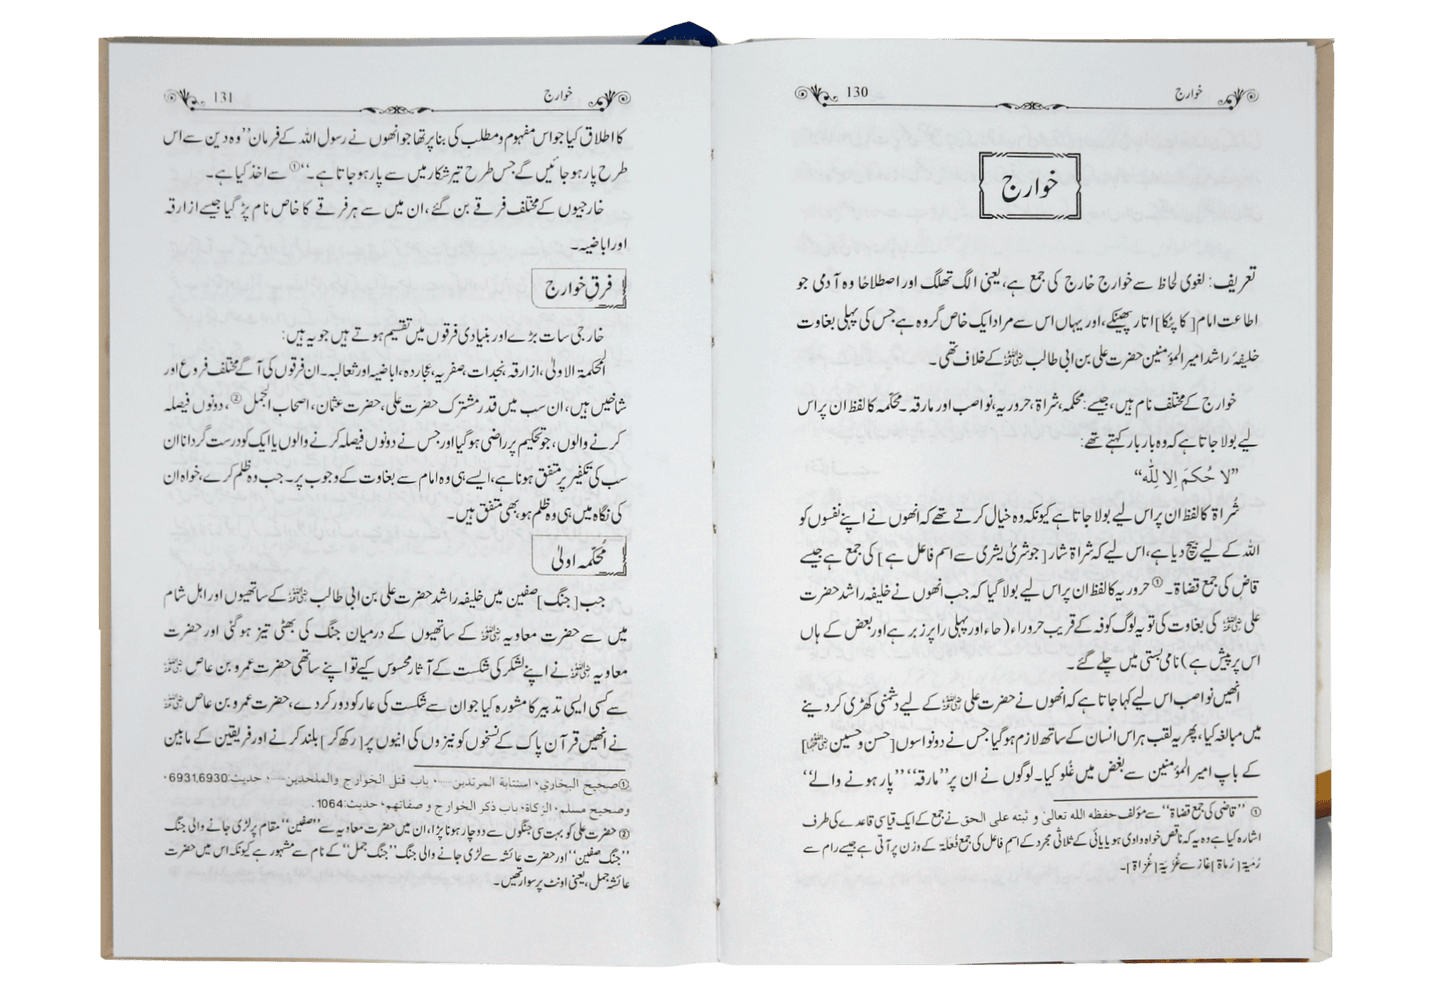 خوارج
130
خوارج
تعریف: لغوی لحاظ سے خوارج خارج کی جمع ہے، یعنی الگ تھلگ اور اصطلاحًا وہ آدمی جو
اطاعت امام [کا پٹکا] اتار پھینکے، اور یہاں اس سے مراد ایک خاص گروہ ہے جس کی پہلی بغاوت
خلیفۂ راشد امیر المؤمنین حضرت علی بن ابی طالب رضی اللہ عنہ کے خلاف تھی۔
خوارج کے مختلف نام ہیں، جیسے: محکمہ، شراۃ، حروریہ، نواصب اور مارقہ۔ محکّمہ کا لفظ ان پر اس
لیے بولا جاتا ہے کہ وہ بار بار کہتے تھے:
”لا حُكمَ اِلا لِلّٰه“
شُراۃ کا لفظ ان پر اس لیے بولا جاتا ہے کیونکہ وہ خیال کرتے تھے کہ انھوں نے اپنے نفسوں کو
اللہ کے لیے بیچ دیا ہے، اس لیے کہ شراۃ شار [جو شریٰ یشری سے اسم فاعل ہے] کی جمع ہے جیسے
قاضٍ کی جمع قضاۃ۔① حروریہ کا لفظ ان پر اس لیے بولا گیا کہ جب انھوں نے خلیفہ راشد حضرت
علی رضی اللہ عنہ کی بغاوت کی تو یہ لوگ کوفہ کے قریب حروراء (حاء اور پہلی را پر زبر ہے اور بعض کے ہاں
اس پر پیش ہے) نامی بستی میں چلے گئے۔
انھیں نواصب اس لیے کہا جاتا ہے کہ انھوں نے حضرت علی رضی اللہ عنہ کے لیے دشمنی کھڑی کر دینے
میں مبالغہ کیا، پھر یہ لقب ہر اس انسان کے ساتھ لازم ہوگیا جس نے دو نواسوں [حسن و حسین رضی اللہ عنہما]
کے باپ امیر المؤمنین سے بغض میں غلو کیا۔ لوگوں نے ان پر ”مارقہ“ ”پار ہونے والے“
① ”قاضی کی جمع قضاۃ“ سے مؤلف حفظه الله تعالىٰ و ثبته على الحق نے جمع کے ایک قیاسی قاعدے کی طرف
اشارہ کیا ہے وہ یہ کہ ناقص خواہ واوی ہو یا یائی کے ثلاثی مجرد کے اسم فاعل کی جمع فُعَلَة کے وزن پر آتی ہے جیسے رام سے
رُمَيَة [رُماة] غاز سے غُزَيَة [غُزاة]۔
خوارج
131
کا اطلاق کیا جو اس مفہوم و مطلب کی بنا پر تھا جو انھوں نے رسول اللہ کے فرمان ”وہ دین سے اس
طرح پار ہو جائیں گے جس طرح تیر شکار میں سے پار ہو جاتا ہے۔“① سے اخذ کیا ہے۔
خارجیوں کے مختلف فرقے بن گئے، ان میں سے ہر فرقے کا خاص نام پڑ گیا جیسے ازارقہ
اور اباضیہ۔
فرقِ خوارج
خارجی سات بڑے اور بنیادی فرقوں میں تقسیم ہوتے ہیں جو یہ ہیں:
المحکمۃ الاولیٰ، ازارقہ، نجدات، صفریہ، عجاردہ، اباضیہ اور ثعالبہ۔ ان فرقوں کی آگے مختلف فروع اور
شاخیں ہیں، ان سب میں قدر مشترک حضرت علی، حضرت عثمان، اصحاب الجمل②، دونوں فیصلہ
کرنے والوں، جو تحکیم پر راضی ہوگیا اور جس نے دونوں فیصلہ کرنے والوں یا ایک کو درست گردانا ان
سب کی تکفیر پر متفق ہونا ہے، ایسے ہی وہ امام سے بغاوت کے وجوب پر۔ جب وہ ظلم کرے، خواہ ان
کی نگاہ میں ہی وہ ظلم ہو، بھی متفق ہیں۔
مُحکّمہ اولیٰ
جب [جنگ] صفین میں خلیفہ راشد حضرت علی بن ابی طالب رضی اللہ عنہ کے ساتھیوں اور اہل شام
میں سے حضرت معاویہ رضی اللہ عنہ کے ساتھیوں کے درمیان جنگ کی بھٹی تیز ہوگئی اور حضرت
معاویہ رضی اللہ عنہ نے اپنے لشکر کی شکست کے آثار محسوس کیے تو اپنے ساتھی حضرت عمرو بن عاص رضی اللہ عنہ
سے کسی ایسی تدبیر کا مشورہ کیا جو ان سے شکست کی عار کو دور کردے، حضرت عمرو بن عاص رضی اللہ عنہ
نے انھیں قرآن پاک کے نسخوں کو نیزوں کی انیوں پر [رکھ کر] بلند کرنے اور فریقین کے مابین
① صحيح البخاري، استتابة المرتدين.....، باب قتل الخوارج والملحدين.....، حديث:6931,6930،
وصحيح مسلم، الزكاة، باب ذكر الخوارج و صفاتهم، حديث:1064.
② حضرت علی کو بہت سی جنگوں سے دوچار ہونا پڑا، ان میں حضرت معاویہ سے ”صفین“ مقام پر لڑی جانے والی جنگ
”جنگ صفین“ اور حضرت عائشہ سے لڑی جانے والی جنگ ”جنگ جمل“ کے نام سے مشہور ہے کیونکہ اس میں حضرت
عائشہ جمل، یعنی اونٹ پر سوار تھیں۔